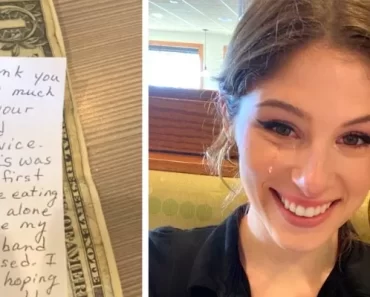 nk you
much
your
d
vice.
s was
first
e eating
alone
e my
band
sed. I
hoping